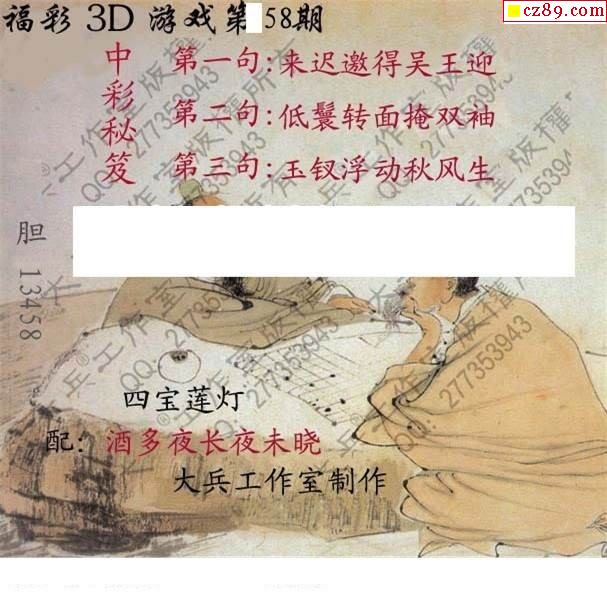 福彩 3D 游戏第 58期
cz89.com
中彩秘笈
第一句:来迟邀得吴王迎
第二句:低鬟转面掩双袖
第三句:玉钗浮动秋风生
胆 13458
四宝莲灯
配：酒多夜长夜未晓
大兵工作室制作
大兵®工作室版權所有
QQ：277353943